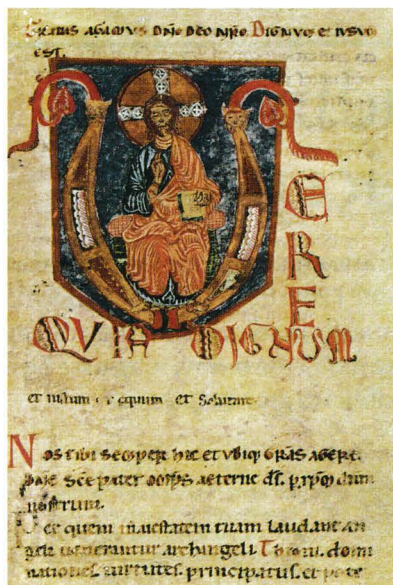 Gratias agamus dño deo ñro. Dignum et iustũ
est.
VERE
QUIA DIGNUM
et iustum equum et salutare
Nos tibi semper hic et ubiq; grãs agere.
sc̃e pater omp̃s aeterne d̃s. p
nostrum.
quem maiestatem tuam laudant an
geli uenerantur archangeli. Throni. domi
nationes. uirtutes. principatus. et pote